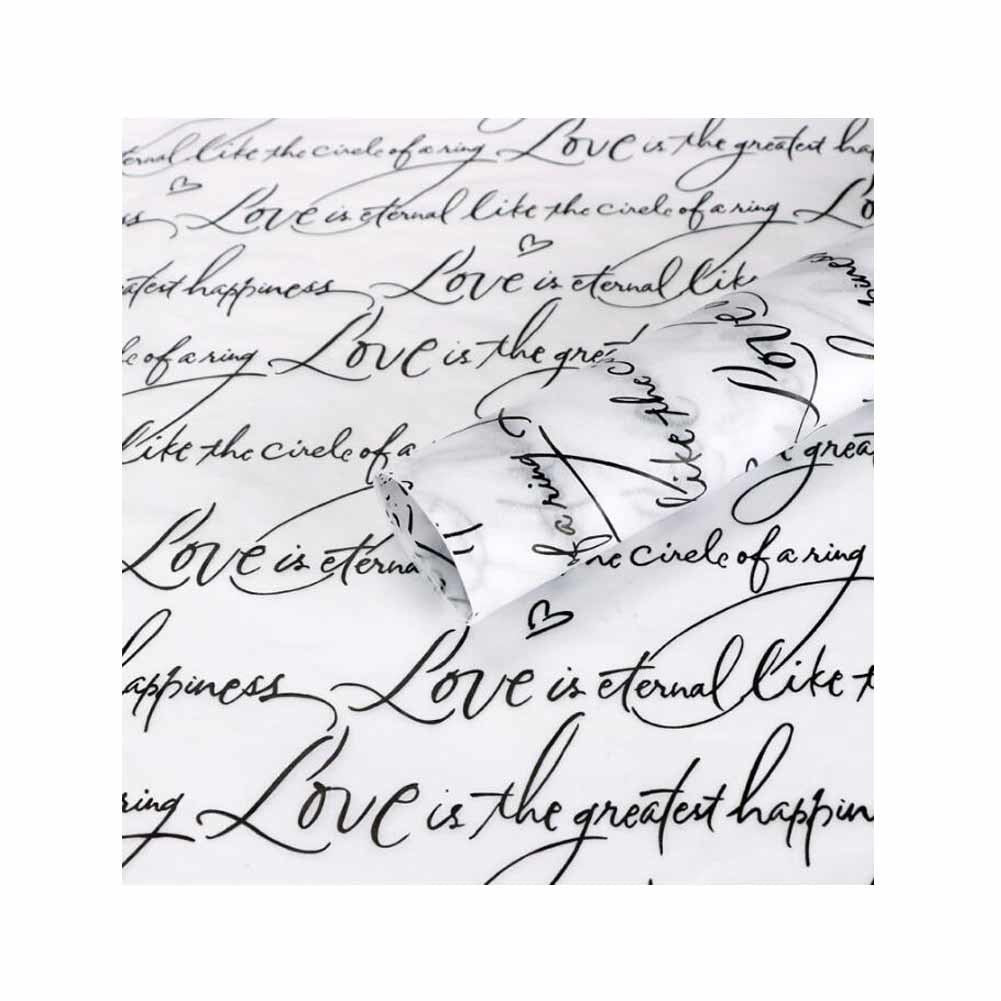 eternal like the circle of a ring Love is the greatest hap
ss Love is eternal like the circle of a ring Lo
atest happiness Love is eternal like
le of a ring Love is the gre
like the circle of a
Love is eterna
a ring like the c Love
great
he circle of a ring
appiness Love is eternal like t
ring Love is the greatest happin